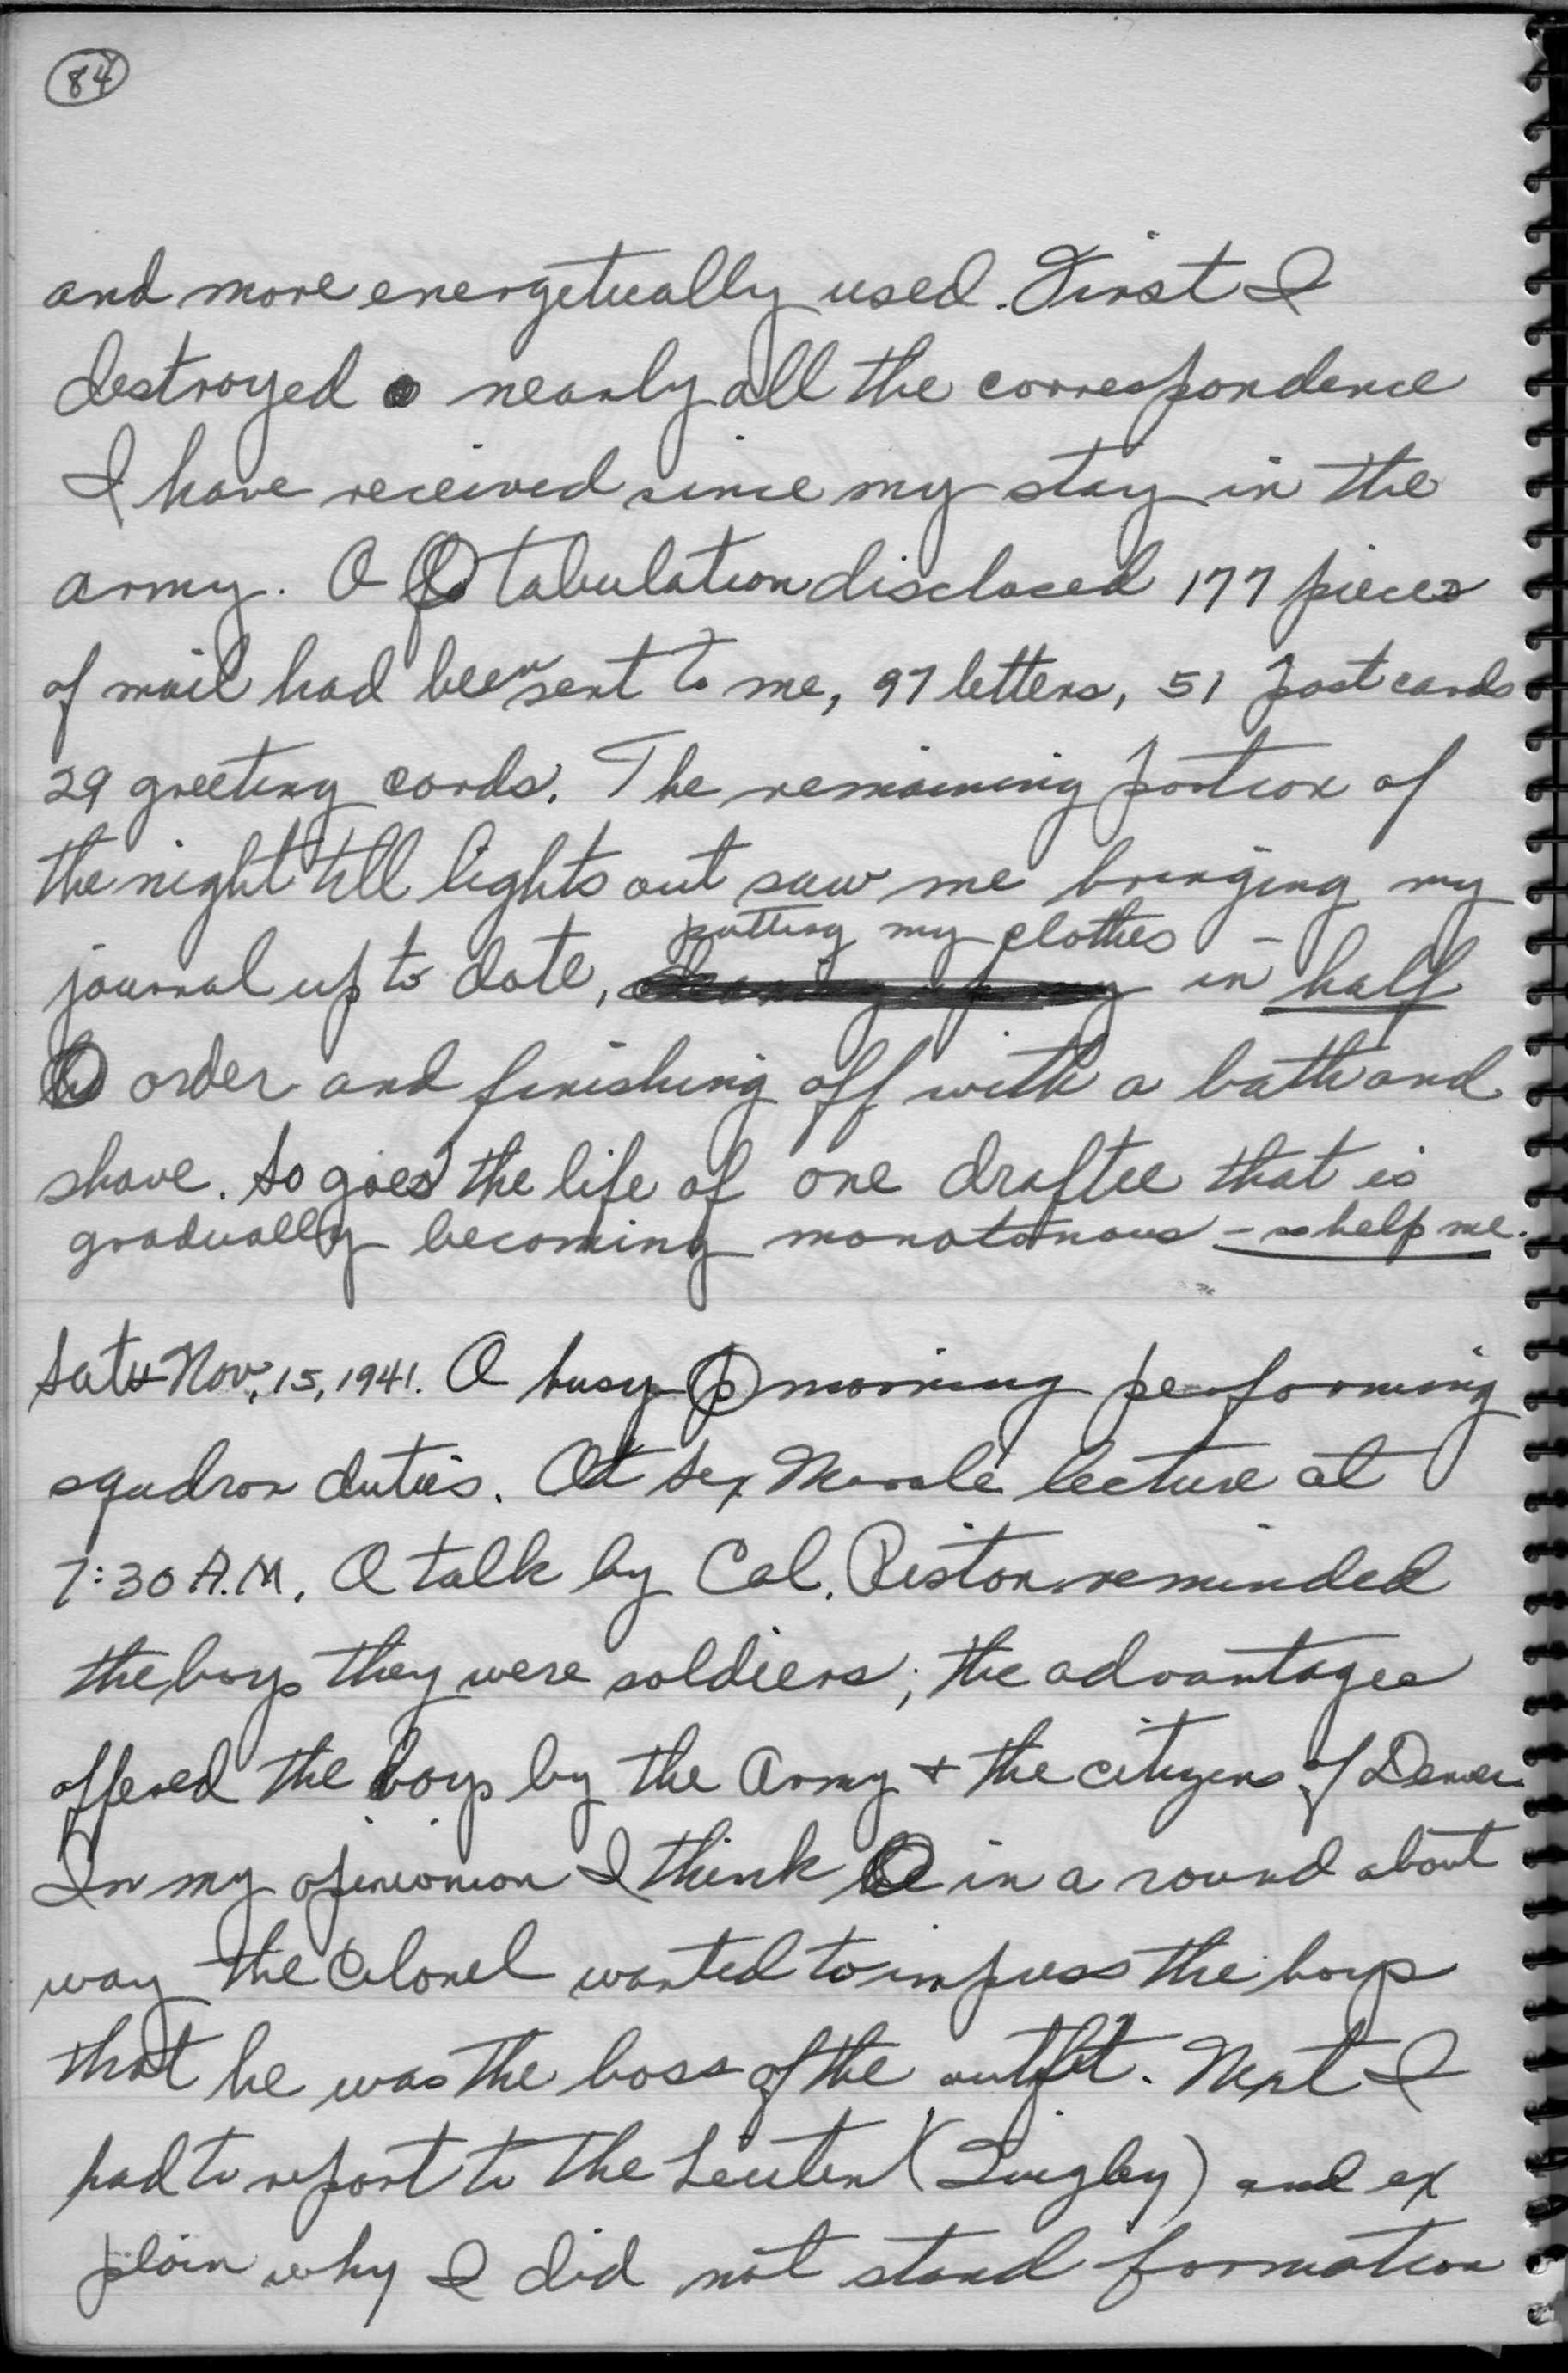 84
and more energetually used. First I
destroyed nearly all the correspondence
I have received since my stay in the
army. A tabulation disclosed 177 pieces
of mail had been sent to me, 97 letters, 51 post cards
29 greeting cards. The remaining portion of
the night till lights out saw me bringing my
putting my clothes
journal up to date, in half
order and finishing off with a bath and
shave. So goes the life of one draftee that is
gradually becoming monotonous - so help me.
Sat Nov. 15, 1941. A busy morning performing
squdron duties. At Sex Morale lecture at
7:30 A.M. A talk by Col. Piston reminded
the boys they were soldiers; the advantages
offered the boys by the Army + the citizens of Denver.
In my opinionion I think in a round about
way the Colonel wanted to impress the boys
that he was the boss of the outfit. Next I
had to report to the Leiuten (Quigley) and ex
plain why I did not stand formation